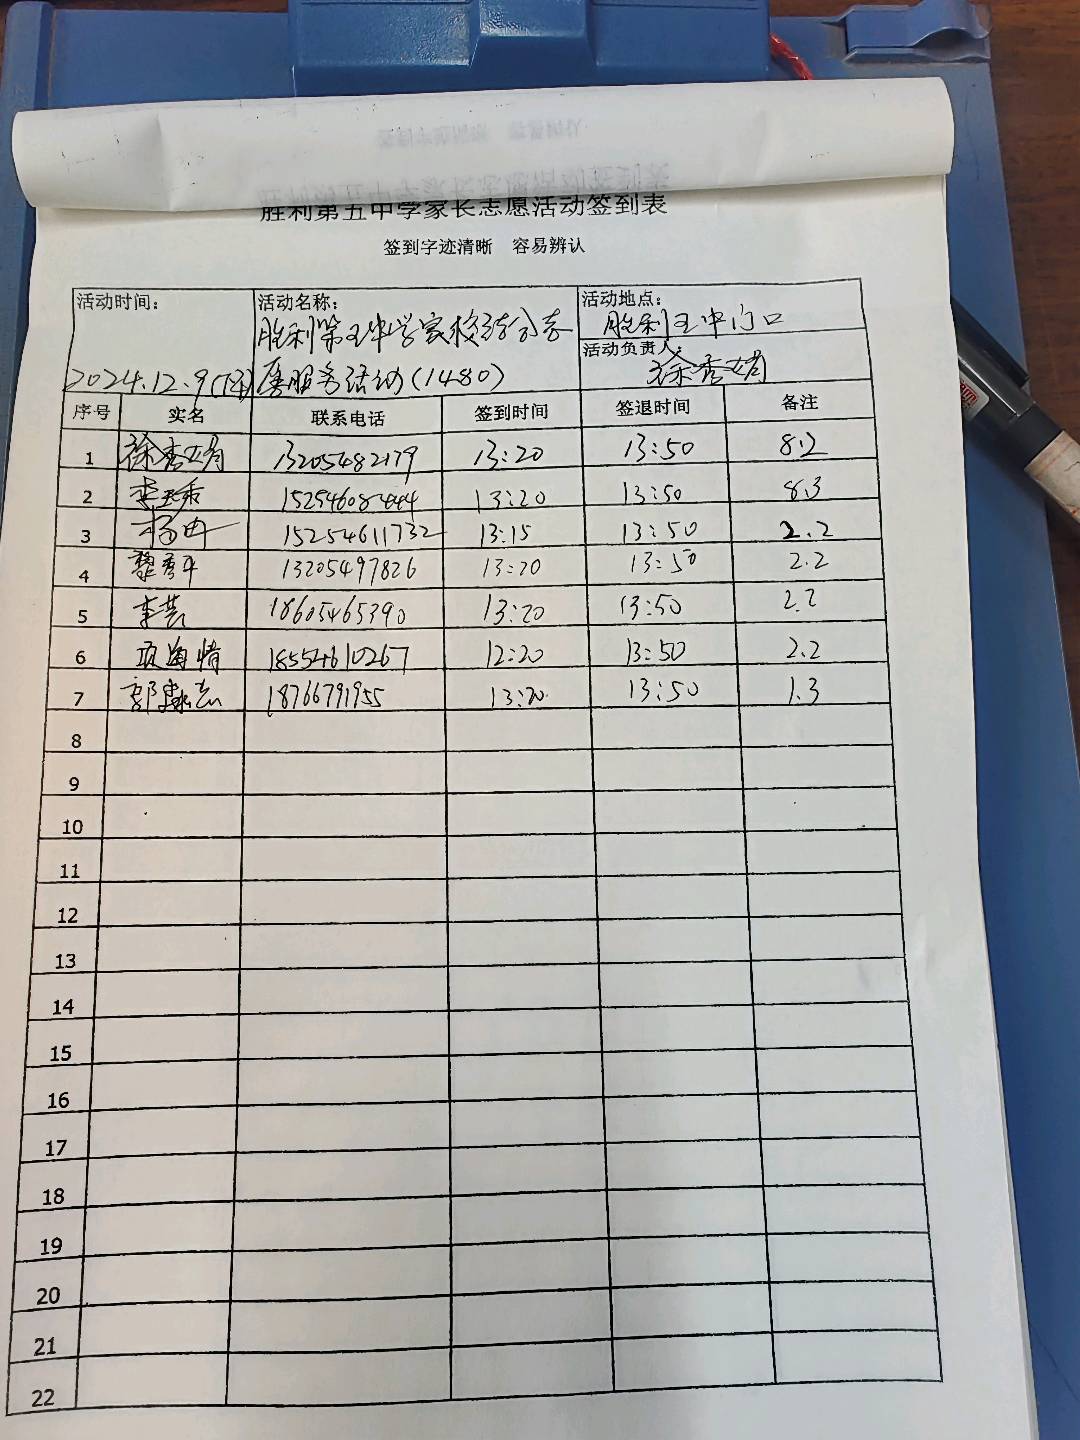 胜利第五中学家长志愿活动签到表
签到字迹清晰 容易辨认
活动时间: 活动名称: 活动地点:
胜利第五中学家校结合志 胜利五中门口
活动负责人: 徐秀娟
2024.12.9 愿服务活动(1480)
序号 实名 联系电话 签到时间 签退时间 备注
1 徐秀娟 13205482179 13:20 13:50 8.2
2 13:20 13:50 8.3
3 杨冉 15254611732 13:15 13:50 2.2
4 黎秀平 13205497826 13:20 13:50 2.2
5 李芸 18605465390 13:20 13:50 2.2
6 项海情 18554610267 12:20 13:50 2.2
7 18766791955 13:20 13:50 1.3
8
9
10
11
12
13
14
15
16
17
18
19
20
21
22